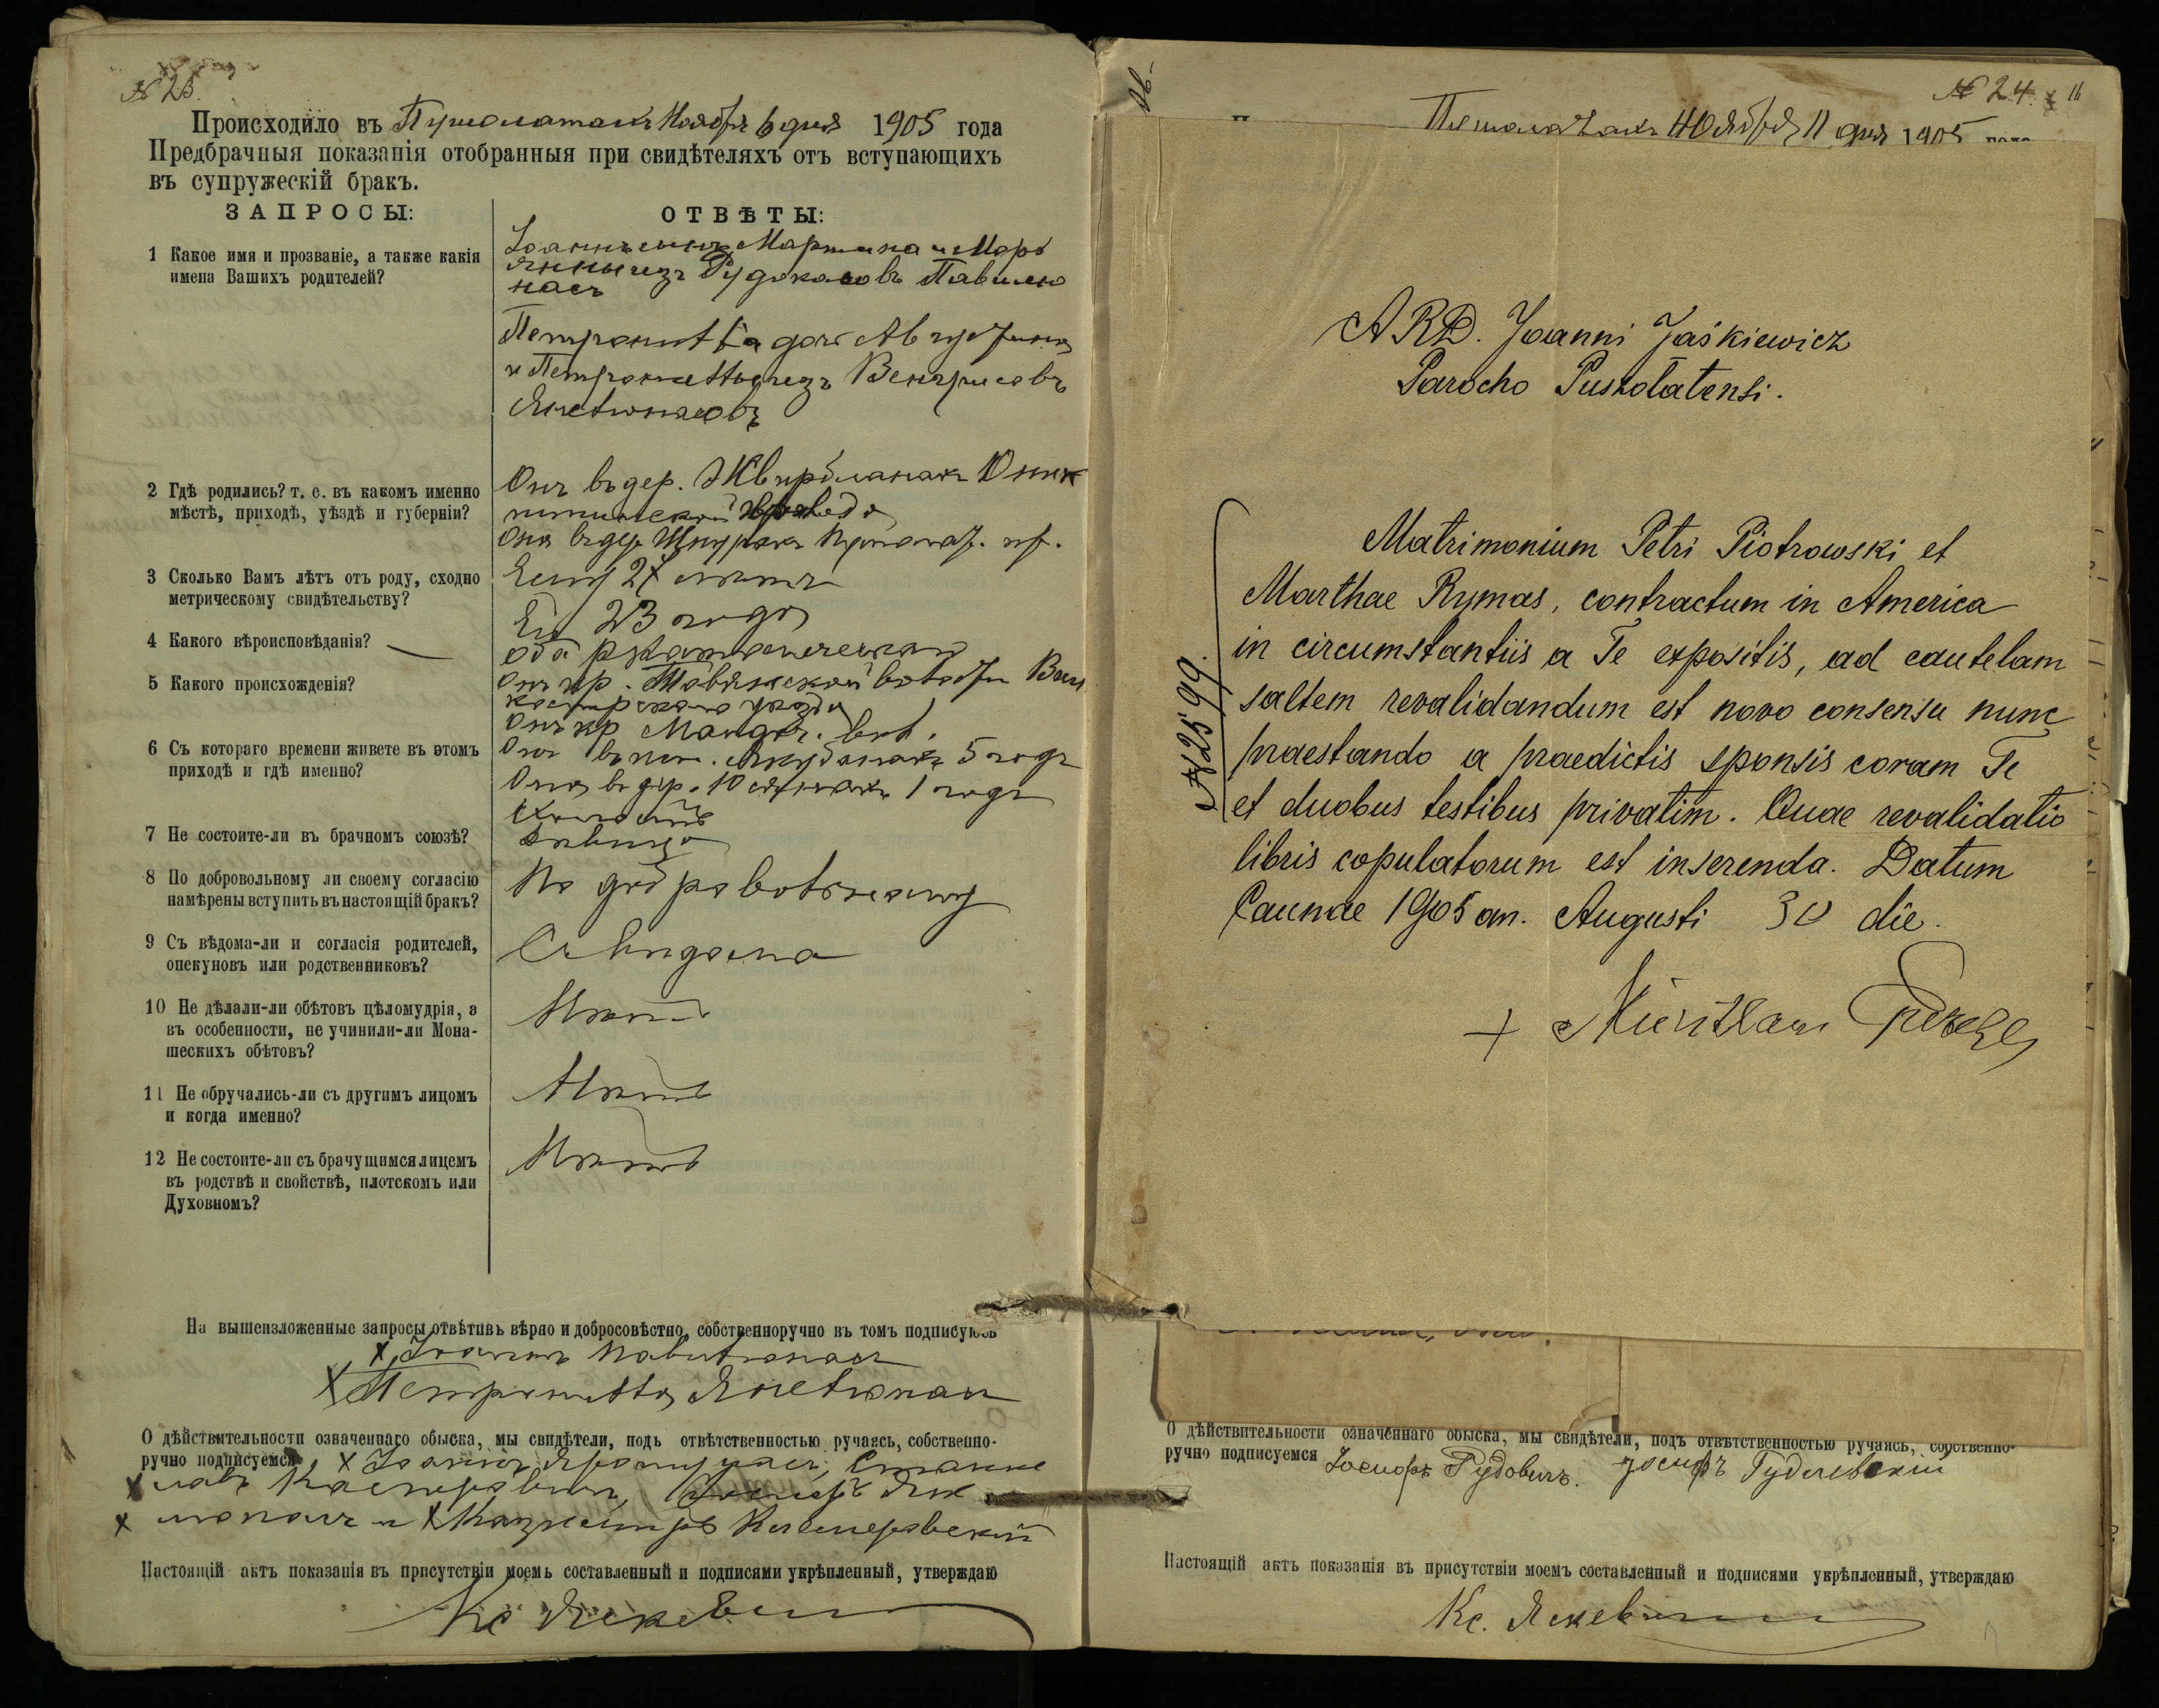 № 23.
Происходило въ Пушолатахъ Ноября 6 дня 1905 года
Предбрачныя показанія отобранныя при свидѣтеляхъ отъ вступающихъ
въ супружескій бракъ.
ЗАПРОСЫ:
ОТВѢТЫ:
1 Какое имя и прозваніе, а также какія
имена Вашихъ родителей?
Іоаннъ сынъ Мартина и Марі
янны изъ Рудокасовъ Павилю
насъ
Петронилла дочь Августина
и Петронеллы изъ
2 Гдѣ родились? т. е. въ какомъ именно
мѣстѣ, приходѣ, уѣздѣ и губерніи?
Онъ въ дер.
Она въ дер. Пушолат. пр.
3 Сколько Вамъ лѣтъ отъ роду, сходно
метрическому свидѣтельству?
Ему 27 лѣтъ
Ей 23 года
4 Какого вѣроисповѣданія?
оба
5 Какого происхожденія?
Онъ кр.
6 Съ котораго времени живете въ этомъ
приходѣ и гдѣ именно?
Онъ 5 годъ
Она въ дер. 1 годъ
7 Не состоите-ли въ брачномъ союзѣ?
Холостъ
дѣвица
8 По добровольному ли своему согласію
намѣрены вступить въ настоящій бракъ?
По добровольному
9 Съ вѣдома-ли и согласія родителей,
опекуновъ или родственниковъ?
Съ вѣдома
10 Не дѣлали-ли обѣтовъ цѣломудрія, а
въ особенности, не учинили-ли Мона-
шескихъ обѣтовъ?
Нѣтъ
11 Не обручались-ли съ другимъ лицомъ
и когда именно?
Нѣтъ
12 Не состоите-ли съ брачущимся лицемъ
въ родствѣ и свойствѣ, плотскомъ или
Духовномъ?
Нѣтъ
На вышеизложенные запросы отвѣтивъ вѣрно и добросовѣстно, собственноручно въ томъ подписуюсь
х Іоаннъ Павилюнасъ
х Петронилла
О дѣйствительности означеннаго обыска, мы свидѣтели, подъ отвѣтственностью ручаясь, собственно-
ручно подписуемся х Іоаннъ
х
х и х Казимиръ
Настоящій актъ показанія въ присутствіи моемъ составленный и подписями укрѣпленный, утверждаю
Кс Яскевичъ
№ 24. 11
Пушолатахъ Ноября 11 дня 1905 года
A.R.D. Joanni Jaśkiewicz
Parocho Puszolatensi.
№ 2599.
Matrimonium Petri Piotrowski et
Marthae Rymas, contractum in America
in circumstantiis a Te expositis, ad cautelam
saltem revalidandum est novo consensu nunc
praestando a praedictis sponsis coram Te
et duobus testibus privatim. Quae revalidatio
libris copulatorum est inserenda. Datum
Caunae 1905 an. Augusti 30 die.
О дѣйствительности означеннаго обыска, мы свидѣтели, подъ отвѣтственностью ручаясь, собственно-
ручно подписуемся Іосифъ Рудовичъ. Іосифъ Гудлевскій
Настоящій актъ показанія въ присутствіи моемъ составленный и подписями укрѣпленный, утверждаю
Кс. Яскевичъ